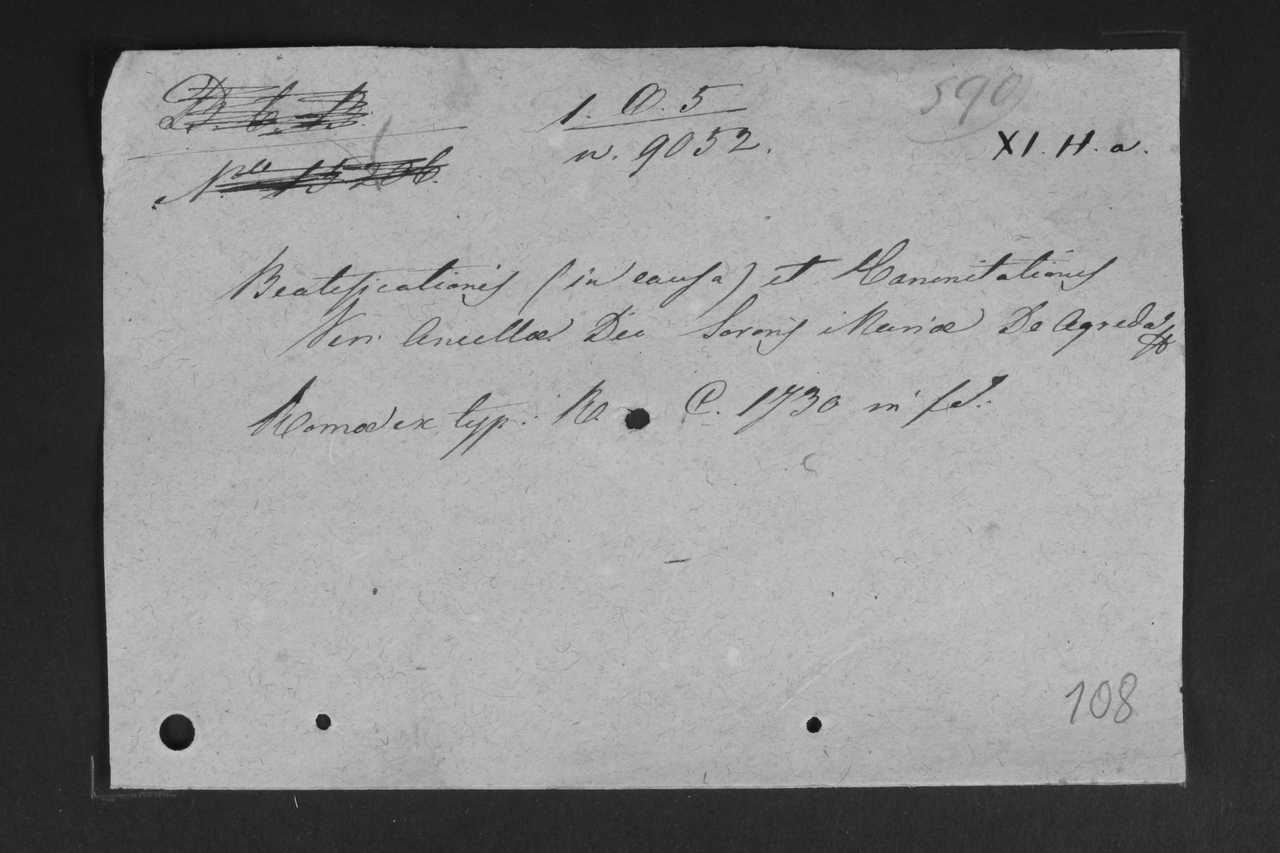 D. C. B.
1. O. 5
590
Nro 15206.
n. 9052.
XI. H. a.
Beatificationis (in causa) et Canonitationis
Ven. Ancellæ Dei Sororis Mariæ De Agreda
Romæ ex typ. R. C. 1730 in fol.
108